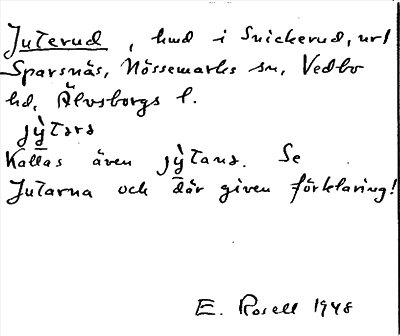 Juterud, hmd i Snickerud, url
Sparsnäs, Nössemarks sn, Vedbo
hd, Älvsborgs l.
jỳtərə
Kallas även jỳtanə. Se
Jutarna och där given förklaring!
E. Rosell 1948